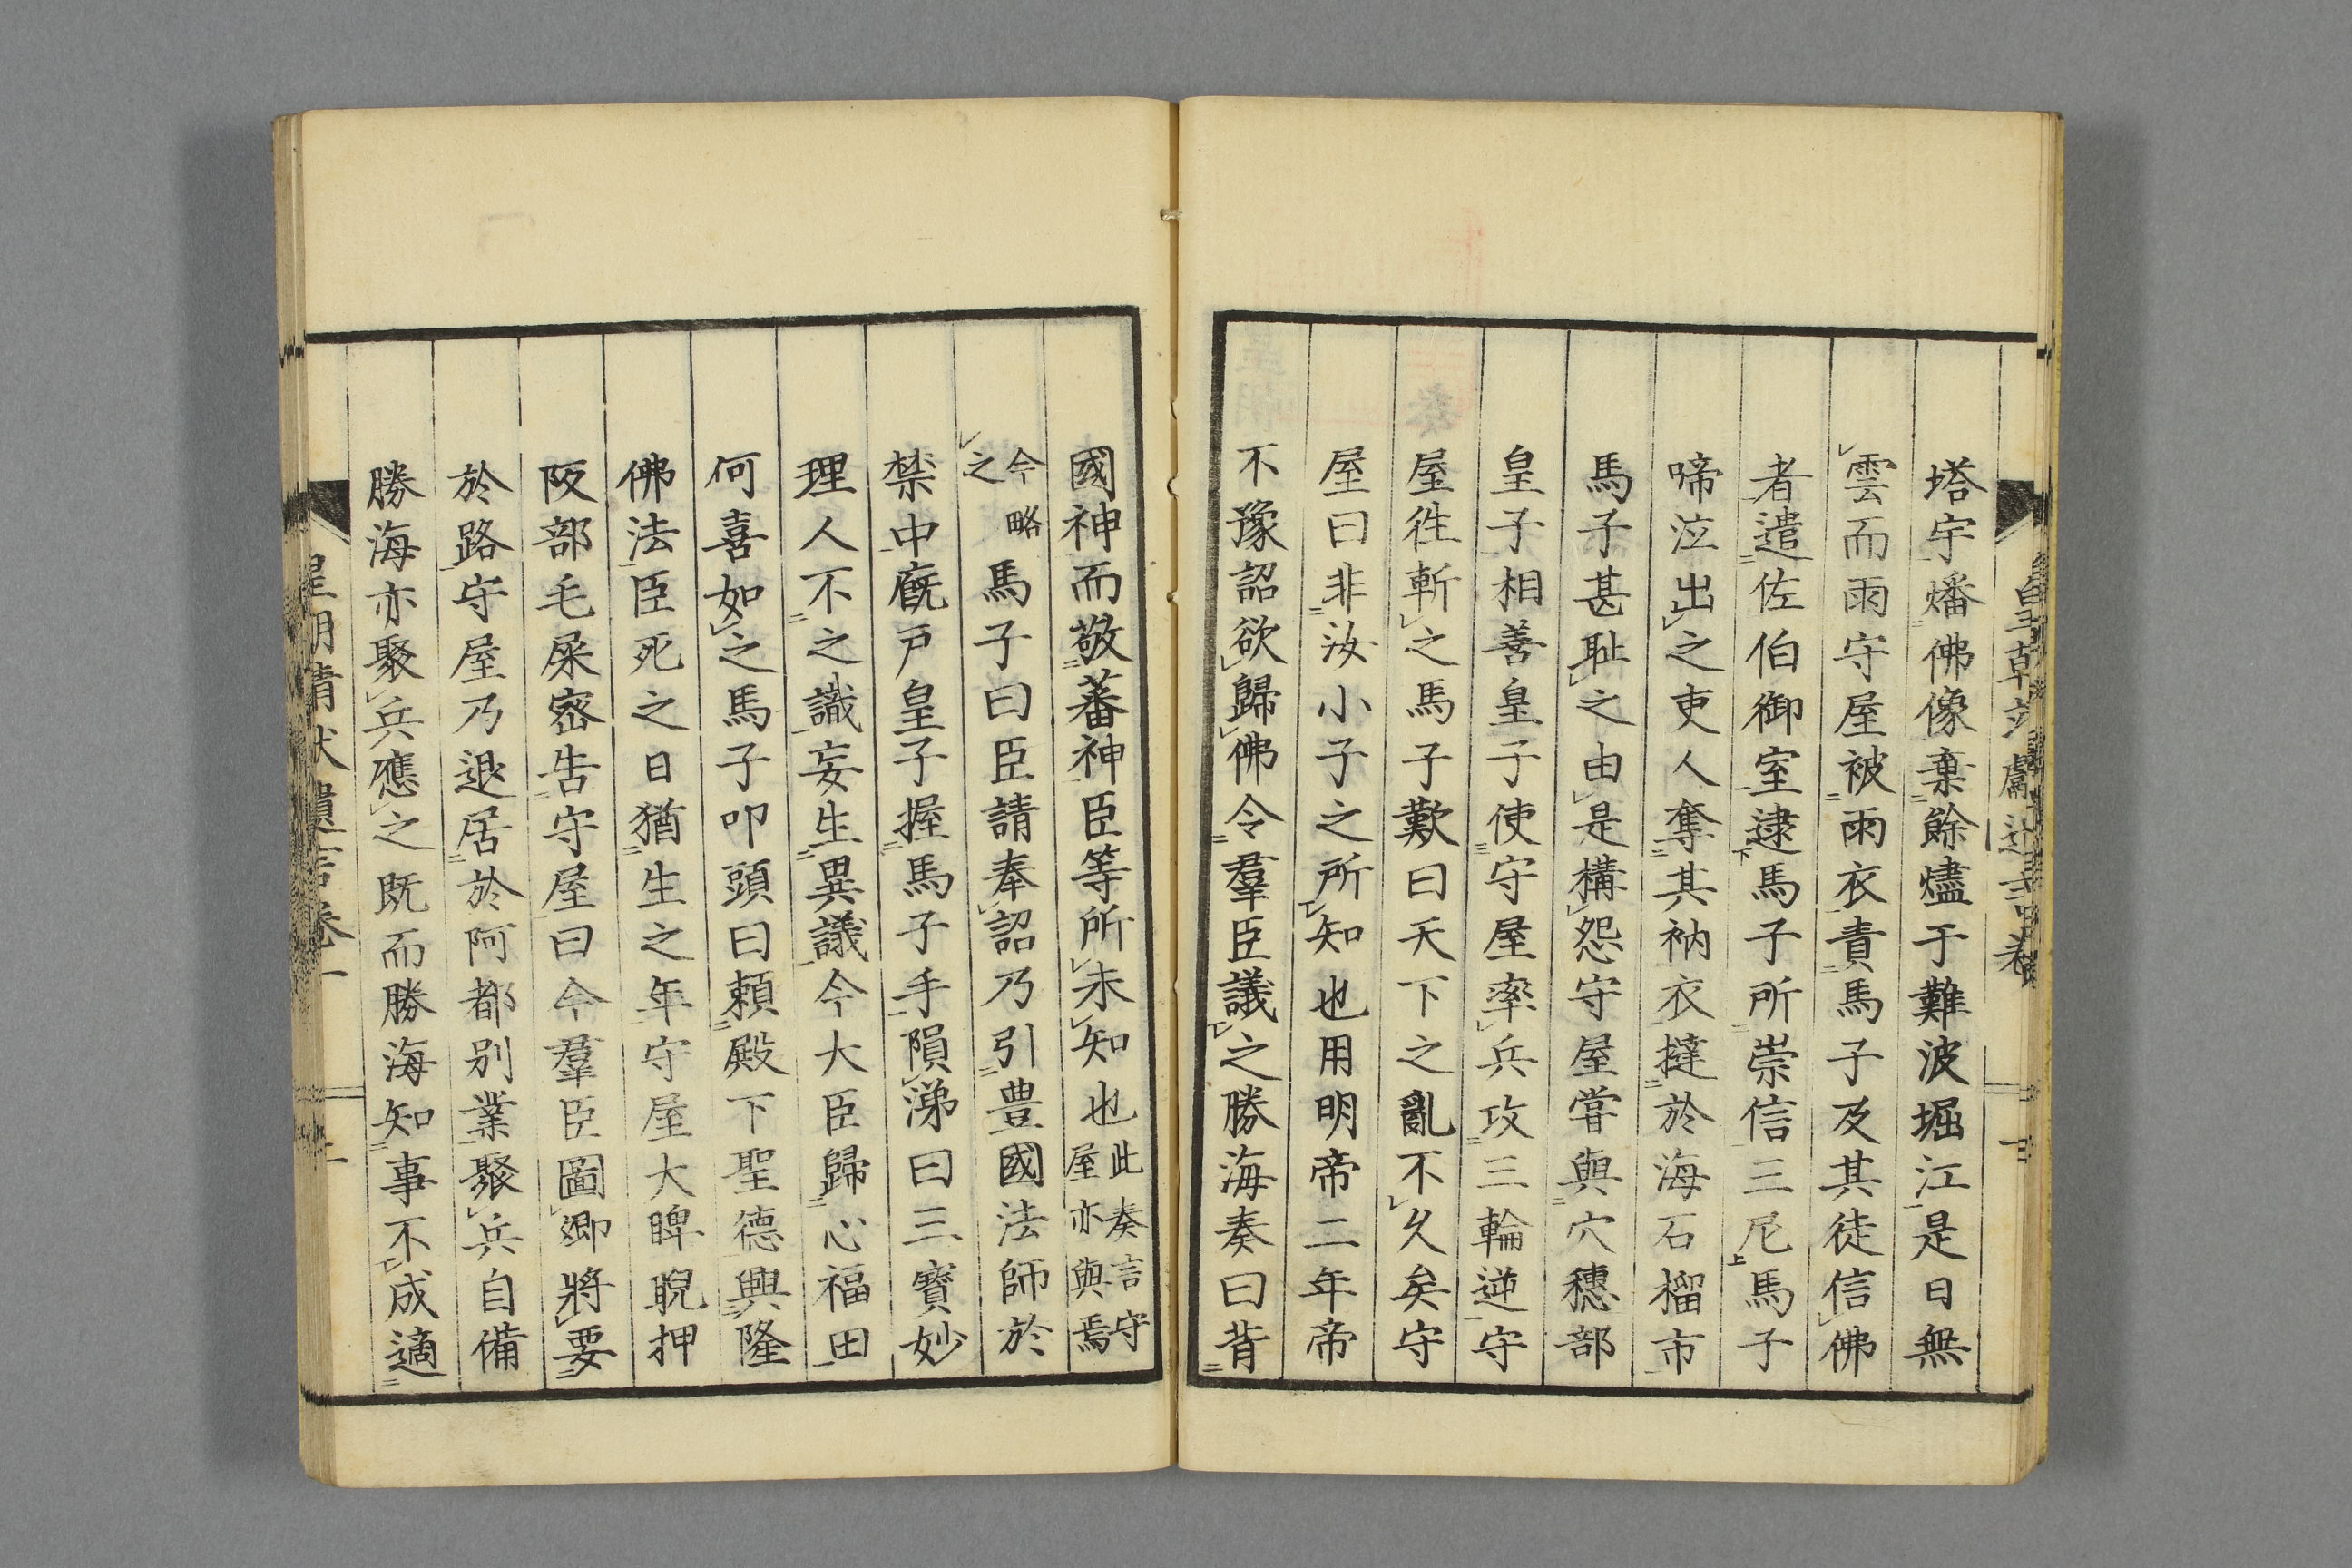 塔宇燔佛像棄餘燼于難波堀江是日無
雲而雨守屋被雨衣責馬子及其徒信佛
者遣佐伯御室逮馬子所崇信三尼馬子
啼泣出之吏人奪其衲衣撻於海石榴市
馬子甚耻之由是構怨守屋嘗與穴穗部
皇子相善皇子使守屋率兵攻三輪逆守
屋徃斬之馬子歎曰天下之亂不久矣守
屋曰非汝小子之所知也用明帝二年帝
不豫詔欲歸佛令羣臣議之勝海奏曰背
國神而敬蕃神臣等所未知也此奏言守屋亦與焉
今略之馬子曰臣請奉詔乃引豊國法師於
禁中廐戸皇子握馬子手隕涕曰三寳妙
理人不之識妄生異議今大臣歸心福田
何喜如之馬子叩頭曰頼殿下聖德興隆
佛法臣死之日猶生之年守屋大睥睨押
阪部毛屎密告守屋曰今羣臣圖卿將要
於路守屋乃退居於阿都别業聚兵自備
勝海亦聚兵應之既而勝海知事不成適